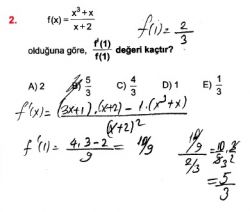 2. f(x) = x³ + x / x + 2
f(1) = 2/3
olduğuna göre, f'(1)/f(1) değeri kaçtır?
A) 2 B) 5/3 C) 4/3 D) 1 E) 1/3
f'(x) = (3x+1).(x+2) - 1.(x³+x) / (x+2)²
f'(1) = 4.3-2 / 9 = 10/9
10/9 / 2/3 = 10.3 / 9.2
= 5/3